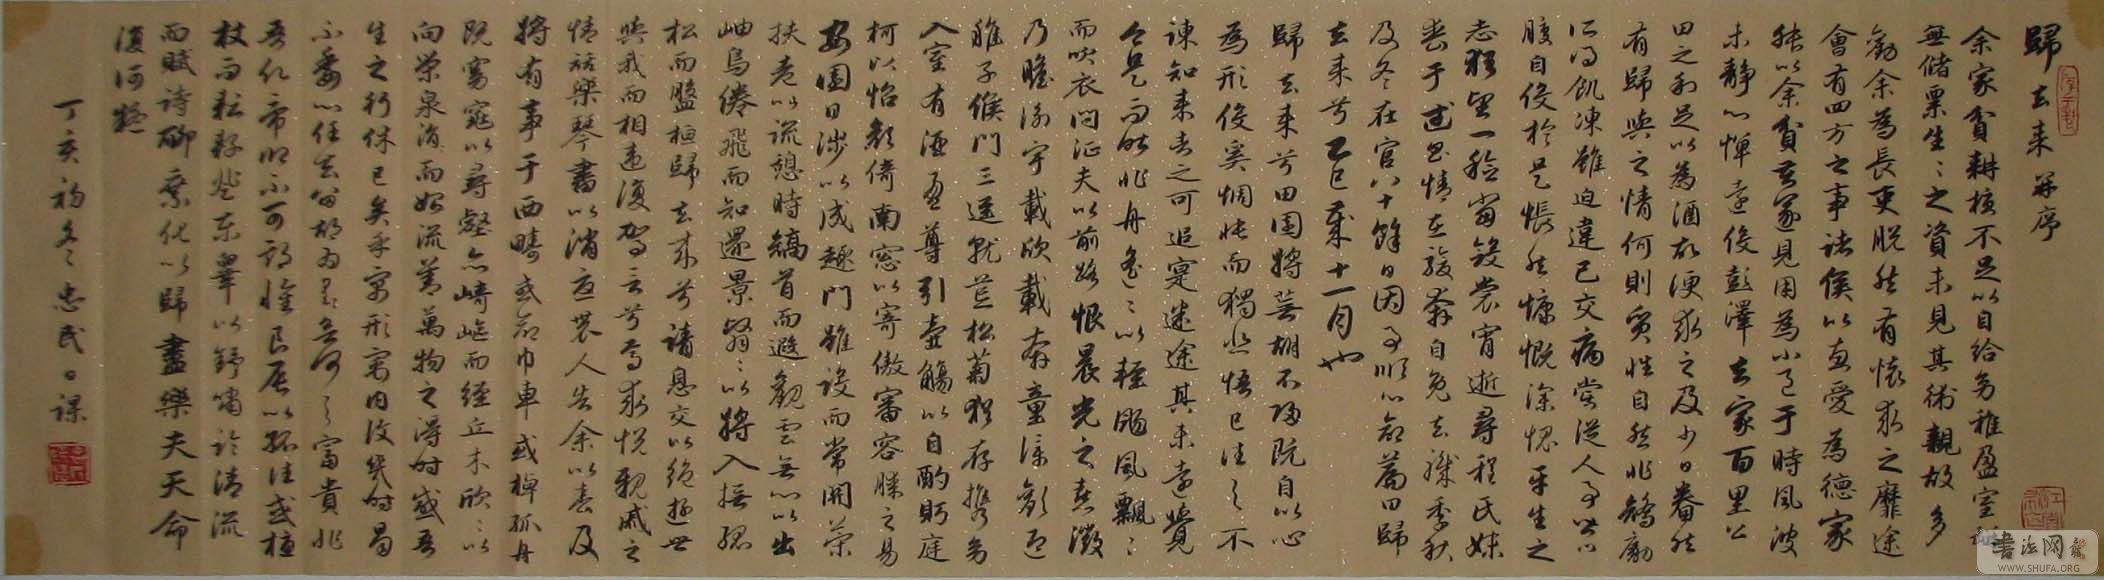 歸去来并序
余家貧耕植不足以自給幼稚盈室缾
無儲粟生々之資未見其術親故多
勸余為長吏脱然有懷求之靡途
會有四方之事諸侯以惠愛為德家
叔以余貧苦遂見用為小邑于時風波
未靜心憚遠役彭澤去家百里公
田之利足以為酒故便求之及少日眷然
有歸與之情何則質性自然非矯勵
所得飢凍雖迫違已交病嘗從人事皆口
腹自役於是悵然慷慨深愧平生之
志猶望一稔當斂裳宵逝尋程氏妹
喪于武昌情在駿奔自免去職季秋
及冬在官八十餘日因事順心命篇曰歸
去来兮乙巳歲十一月也
歸去来兮田園將蕪胡不歸既自以心
為形役奚惆悵而獨悲悟已往之不
諫知来者之可追寔迷途其未遠覺
今是而昨非舟遙々以輕颺風飄々
而吹衣問征夫以前路恨晨光之熹微
乃瞻衡宇載欣載奔童僕歡迎
稚子候門三逕就荒松菊猶存携幼
入室有酒盈尊引壺觴以自酌眄庭
柯以怡顏倚南窓以寄傲審容膝之易
安園日涉以成趣門雖設而常關策
扶老以流憩時矯首而遐觀雲無心以出
岫鳥倦飛而知還景翳々以將入撫孤
松而盤桓歸去来兮請息交以絶遊世
與我而相違復駕言兮焉求悅親戚之
情話樂琴書以消憂農人告余以春及
將有事于西疇或命巾車或棹孤舟
既窈窕以尋壑亦崎嶇而經丘木欣々以
向榮泉涓而始流善萬物之得時感吾
生之行休已矣乎寓形宇内復幾時曷
不委心任去留胡為富貴非
吾願帝鄉不可期懷良辰以孤往或植
杖而耘耔登東皋以舒嘯臨清流
而賦詩聊乘化以歸盡樂夫天命
復何疑
丁亥初冬忠民日課
书法网
WWW.SHUFA.ORG